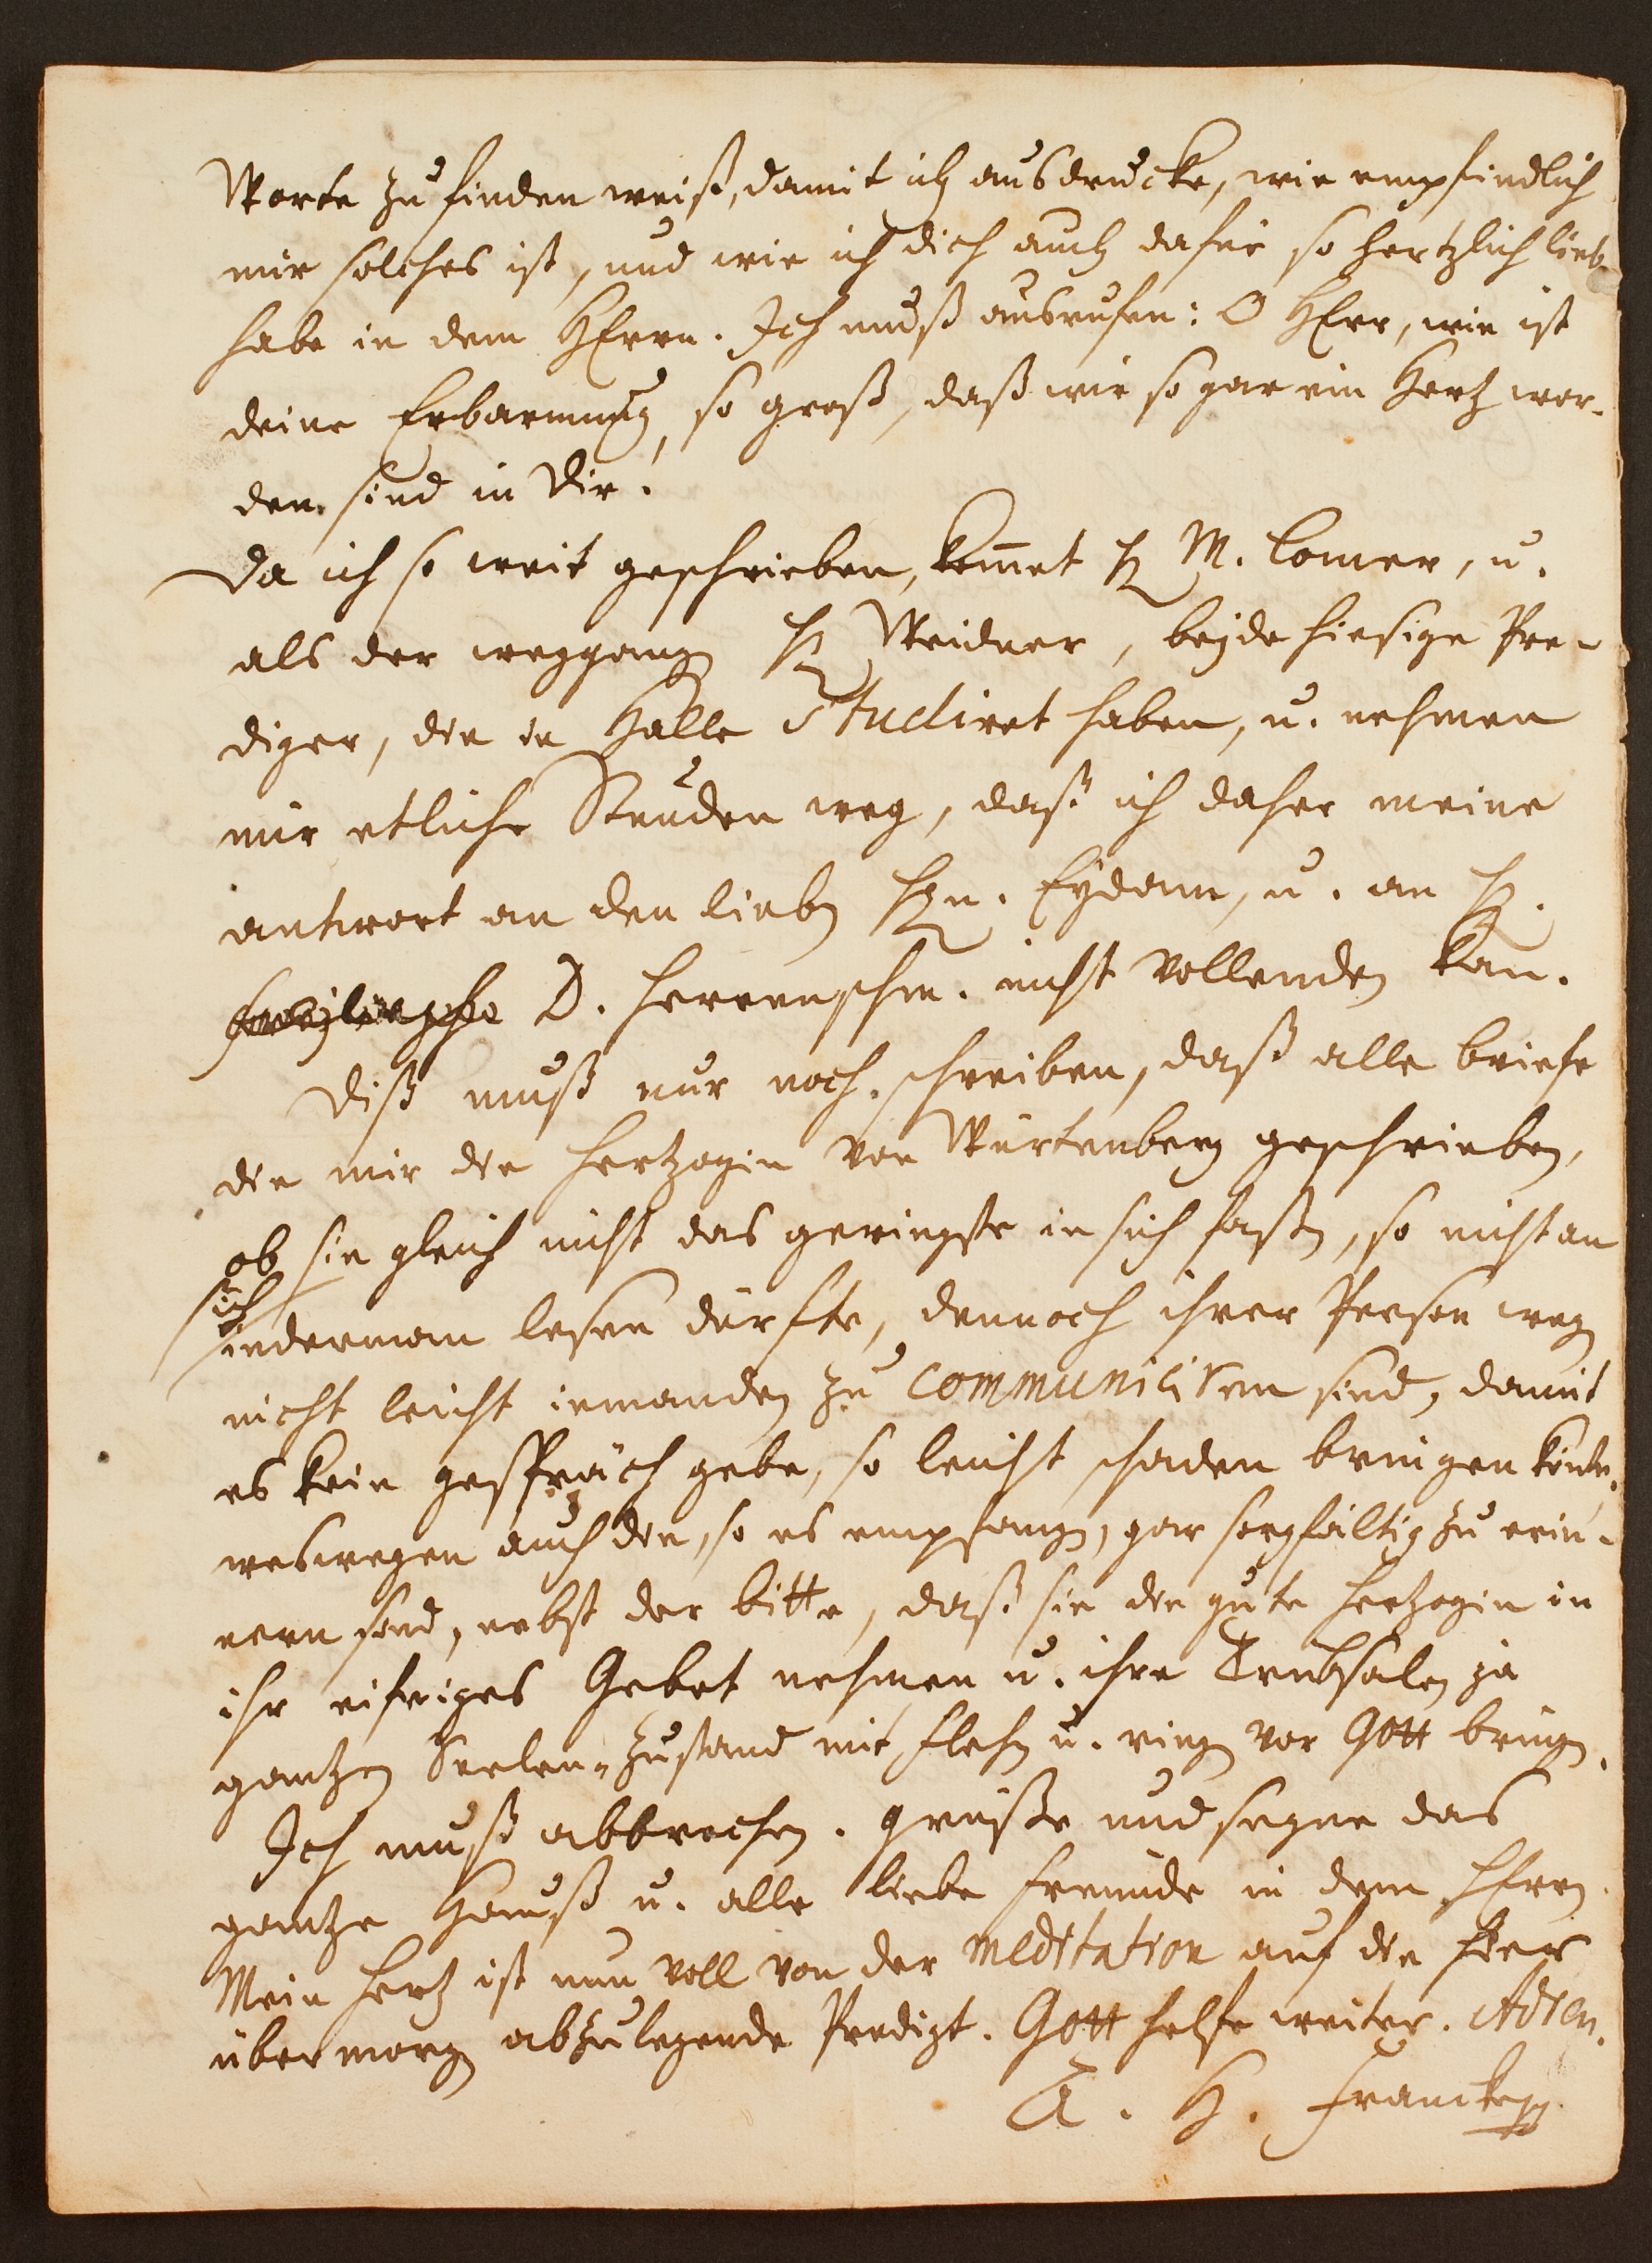 Worte zu finden weiß, damit ich ausdrucke, wie empfindlich
mir solches ist, und wie ich dich auch dafür so hertzlich lieb
habe in dem HErrn. Ich muß ausrufen: O HErr, wie ist
deine Erbarmung so groß, daß wir so gar ein Hertz wor-
den sind in Dir!
Da ich so weit geschrieben, kom̅et H. M. Comer, u.
als der weggang H. Weidner, beyde hiesige Pre-
diger, die in Halle studiret haben, u. nehmen
mir etliche Stunden weg, daß ich daher meine
antwort an den lieben Hrn. Eydam, u. an H.
D. Herrnschm. nicht vollenden kan.
Diß muß nur noch schreiben, daß alle briefe
die mir die Hertzogin von Würtenberg geschrieben,
ob sie gleich nicht das geringste in sich faßen, so nicht an
sich
iederman lesen dürfte, dennoch ihrer Person wegen
nicht leicht iemanden zu communiciren sind, damit
es kein gespräch gebe, so leicht schaden bringen könte,
weswegen auch die, so es empfangen, gar sorgfältig zu erin-
nern sind, nebst der bitte, daß sie die gute Hertzogin in
ihr eifriges Gebet nehmen u. ihre Trübsalen ja
gantzen Seelen-Zustand mit flehen u. ringen vor Gott bringen.
Ich muß abbrechen. Grüße und segne das
gantze Hauß u. alle liebe Freunde in dem HErrn.
Mein Hertz ist nun voll von der meditation auf die hier
übermorgen abzulegende Predigt. Gott helfe weiter. Adieu.
A. H. Francke